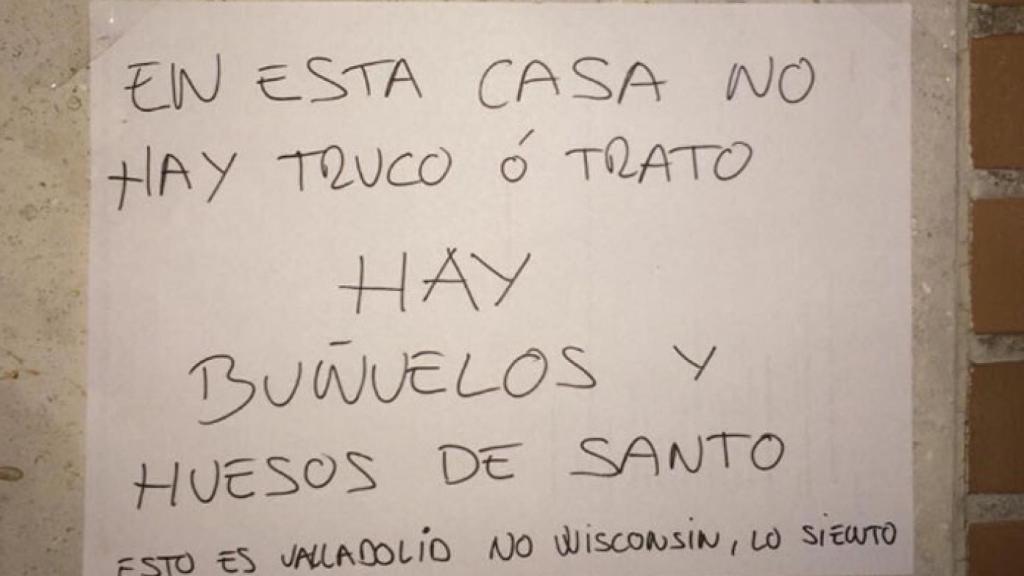 EN ESTA CASA NO
HAY TRUCO ó TRATO
HAY
BUÑUELOS Y
HUESOS DE SANTO
ESTO ES VALLADOLID NO WISCONSIN, LO SIENTO